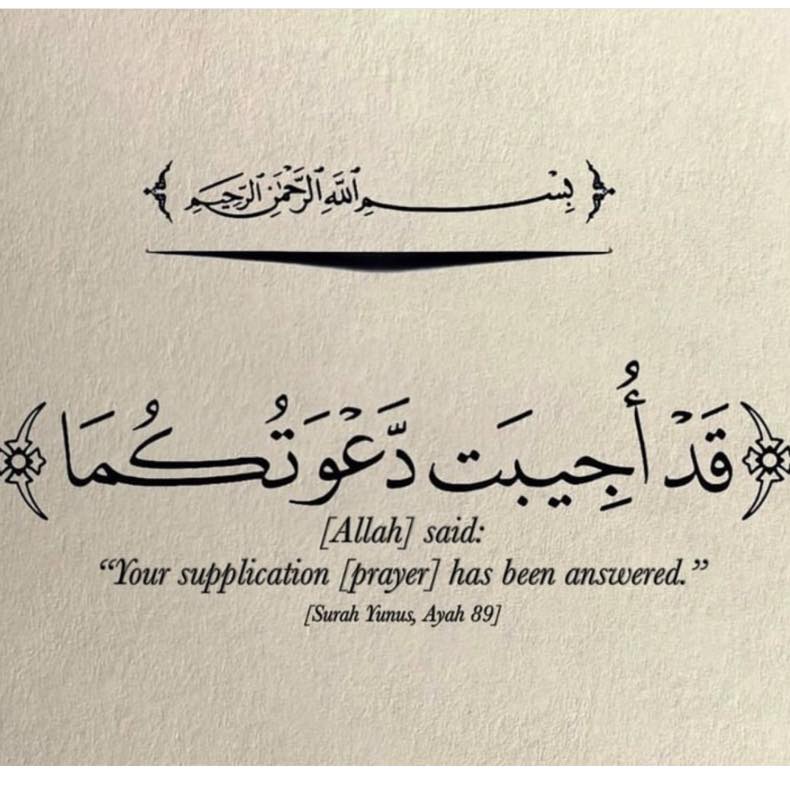 بِسْمِ اللَّهِ الرَّحْمَٰنِ الرَّحِيمِ
﴿قَدْ أُجِيبَت دَّعْوَتُكُمَا﴾
[Allah] said:
“Your supplication [prayer] has been answered.”
[Surah Yunus, Ayah 89]